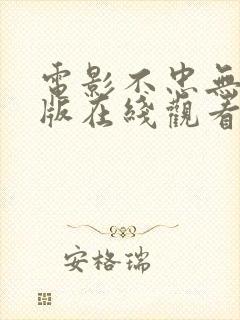 電影不忠無
版在綫觀看
安格瑞